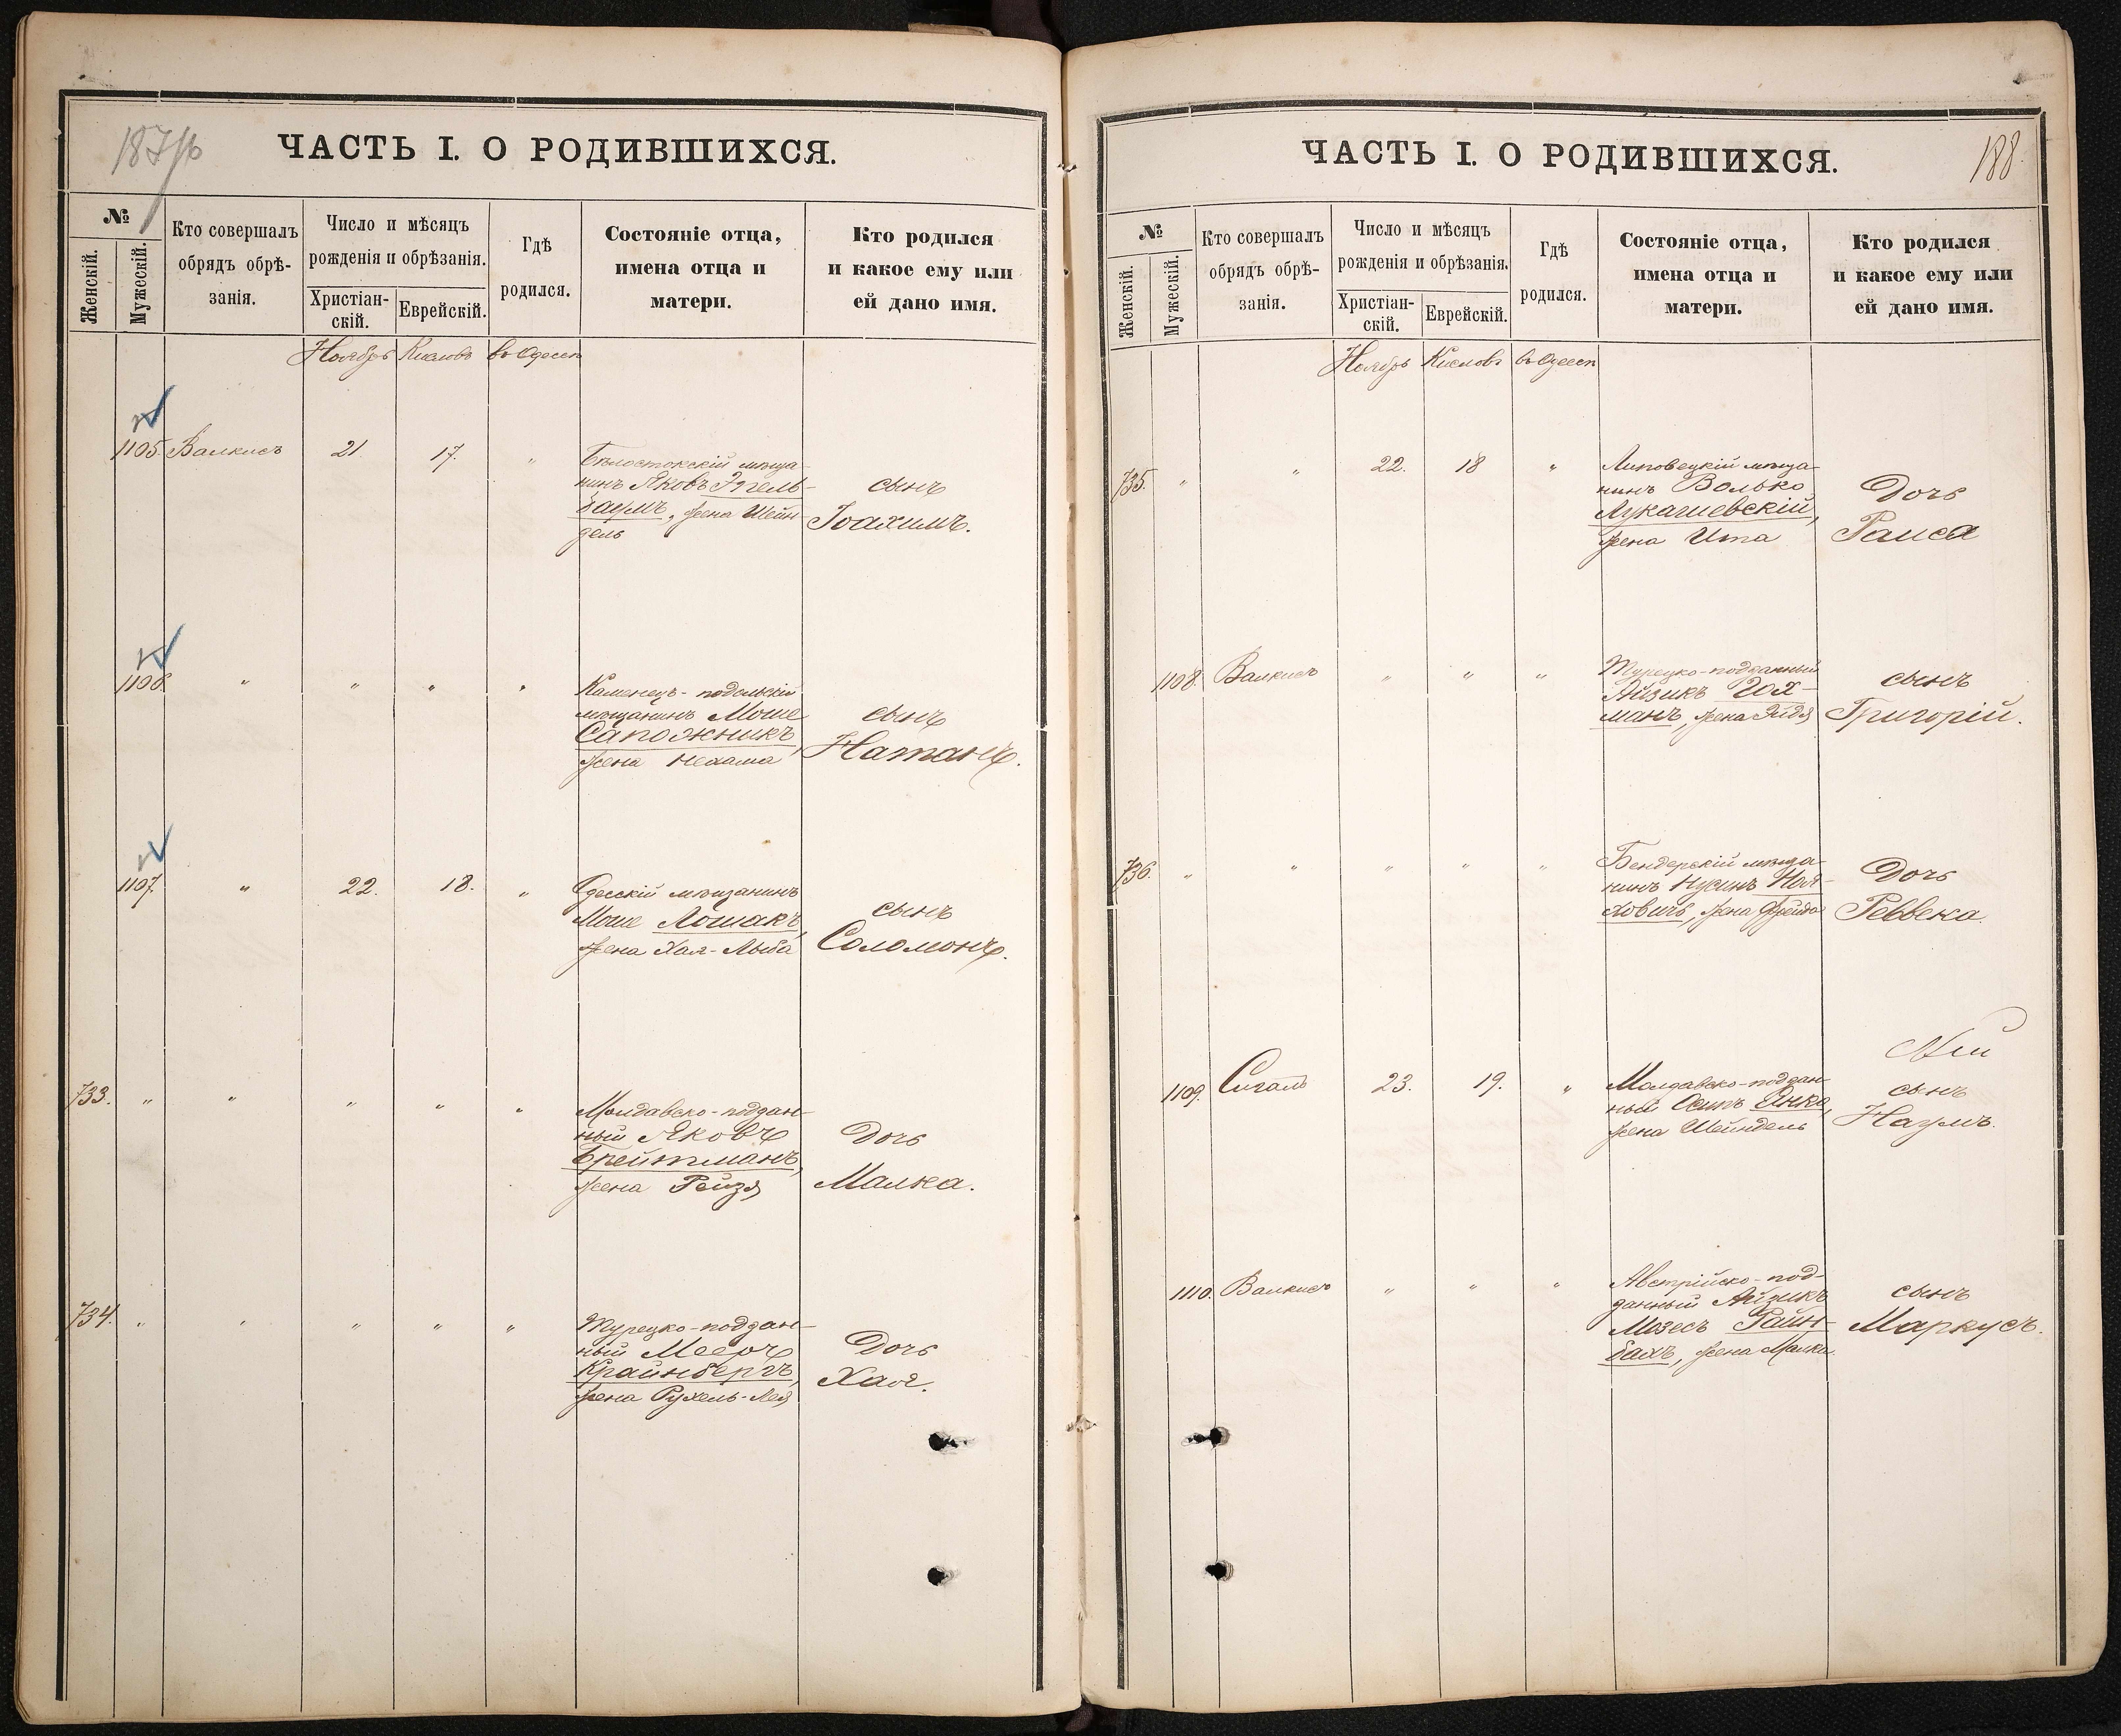 ЧАСТЬ I. О РОДИВШИХСЯ.
№
Женскій.
Мужескій.
Кто совершалъ
обрядъ обрѣ-
занія.
Число и мѣсяцъ
рожденія и обрѣзанія.
Христіан-
скій.
Еврейскій.
Гдѣ
родился.
Состояніе отца,
имена отца и
матери.
Кто родился
и какое ему или
ей дано имя.
Ноябрь Кислевъ въ Одессѣ
1105. Валкисъ 21. 17. "
Бѣлостокскій мѣща-
нинъ Яковъ Эгель-
баумъ, жена Шейн-
дель
сынъ
Іоахимъ.
1106. " " " "
Каменецъ-подольскій
мѣщанинъ Моше
Сапожникъ,
жена Нехама
сынъ
Натанъ.
1107. " 22. 18. "
Одесскій мѣщанинъ
Моше Лошакъ,
жена Хая-Лыба
сынъ
Соломонъ.
733. " " " " "
Молдавско-поддан-
ный Яковъ
Брейтманъ,
жена Рейзя
Дочь
Малка.
734. " " " " "
Турецко-поддан-
ный Мееръ
Крайнбергъ,
жена Рухель-Лея
Дочь
Хая.
ЧАСТЬ I. О РОДИВШИХСЯ.
188.
№
Женскій.
Мужескій.
Кто совершалъ
обрядъ обрѣ-
занія.
Число и мѣсяцъ
рожденія и обрѣзанія.
Христіан-
скій.
Еврейскій.
Гдѣ
родился.
Состояніе отца,
имена отца и
матери.
Кто родился
и какое ему или
ей дано имя.
Ноябрь Кислевъ въ Одессѣ
735. " " 22. 18 "
Липовецкій мѣща-
нинъ Волько
Лукашевскій,
жена Ита
Дочь
Раиса
1108. Валкисъ " " "
Турецко-подданный
Айзикъ Гох-
манъ, жена Эйдя
сынъ
Григорій.
736. " " " " "
Бендерскій мѣща-
нинъ Нусинъ Ноя-
ховичъ, жена Фрейда
Дочь
Реввека
1109. Сигалъ 23. 19. "
Молдавско-поддан-
ный Осипъ Янко,
жена Шейндель
сынъ
Наумъ.
1110. Валкисъ " " "
Австрійско-под-
данный Айзикъ
Мозесъ Райн-
бахъ, жена Малка
сынъ
Маркусъ.